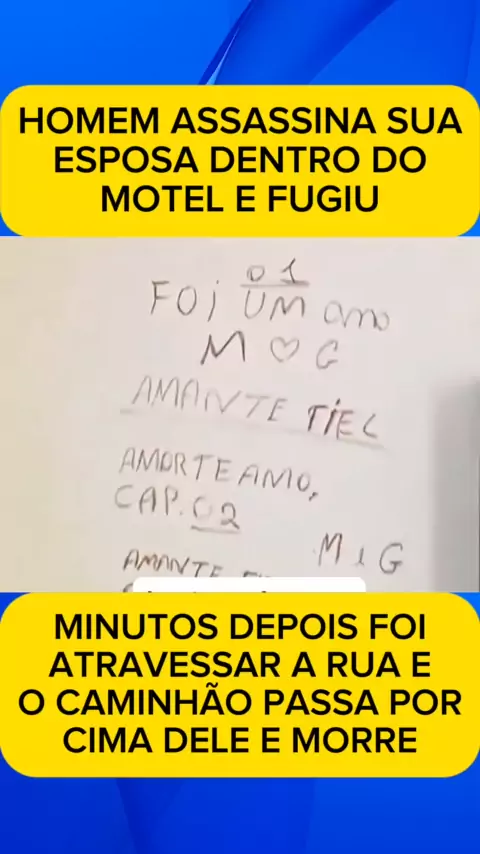 HOMEM ASSASSINA SUA
ESPOSA DENTRO DO
MOTEL E FUGIU
01
FOI UM ano
M ♡ G
AMANTE FIEL
AMORTEAMO,
CAP. 02
M G
AMANTE
MINUTOS DEPOIS FOI
ATRAVESSAR A RUA E
O CAMINHÃO PASSA POR
CIMA DELE E MORRE